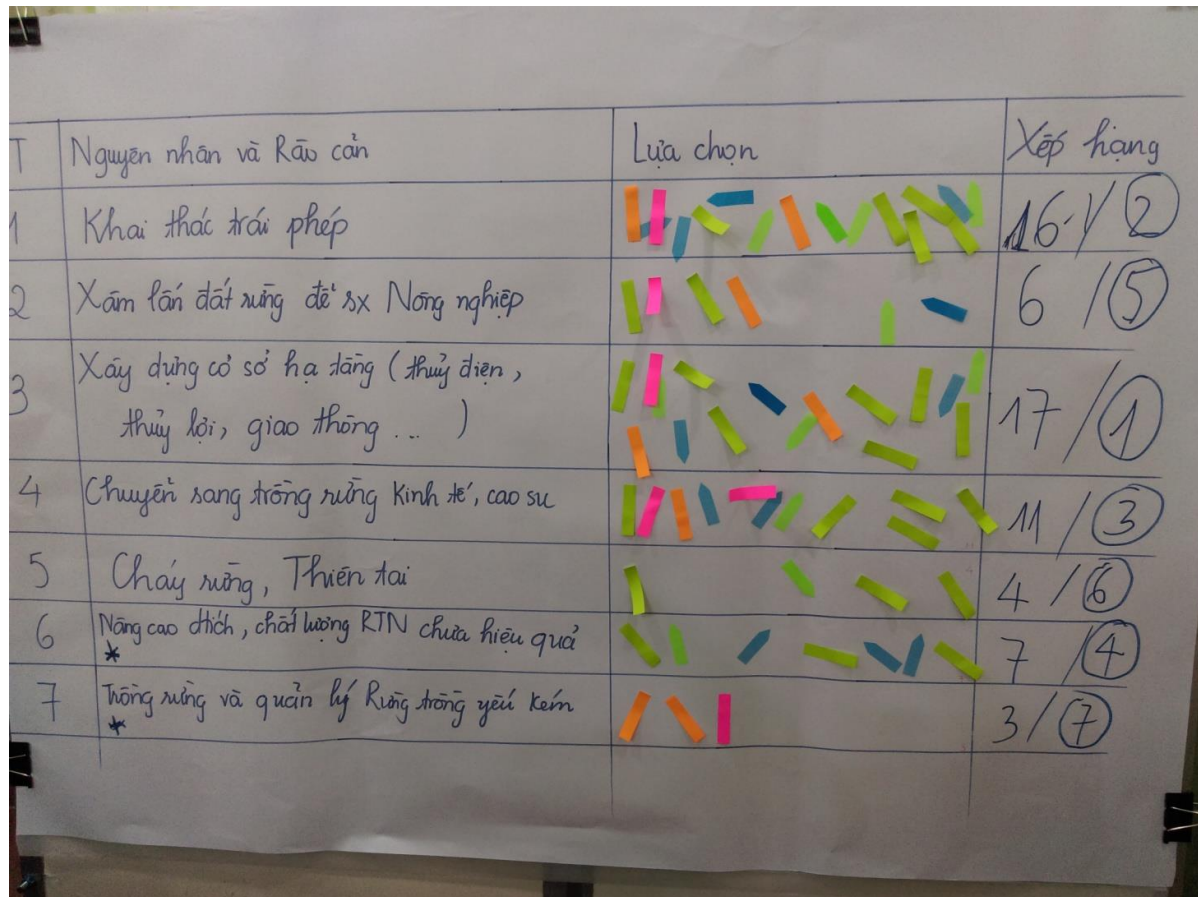 T Nguyên nhân và Rào cản Lựa chọn Xếp hạng
1 Khai thác trái phép 16 / 2
2 Xâm lấn đất rừng để sx Nông nghiệp 6 / 5
3 Xây dựng cơ sở hạ tầng (thủy điện,
thủy lợi, giao thông ... ) 17 / 1
4 Chuyển sang trồng rừng kinh tế, cao su 11 / 3
5 Cháy rừng, Thiên tai 4 / 6
6 Nâng cao dtích, chất lượng RTN chưa hiệu quả 7 / 4
*
7 Trồng rừng và quản lý Rừng trồng yếu kém 3 / 7
*